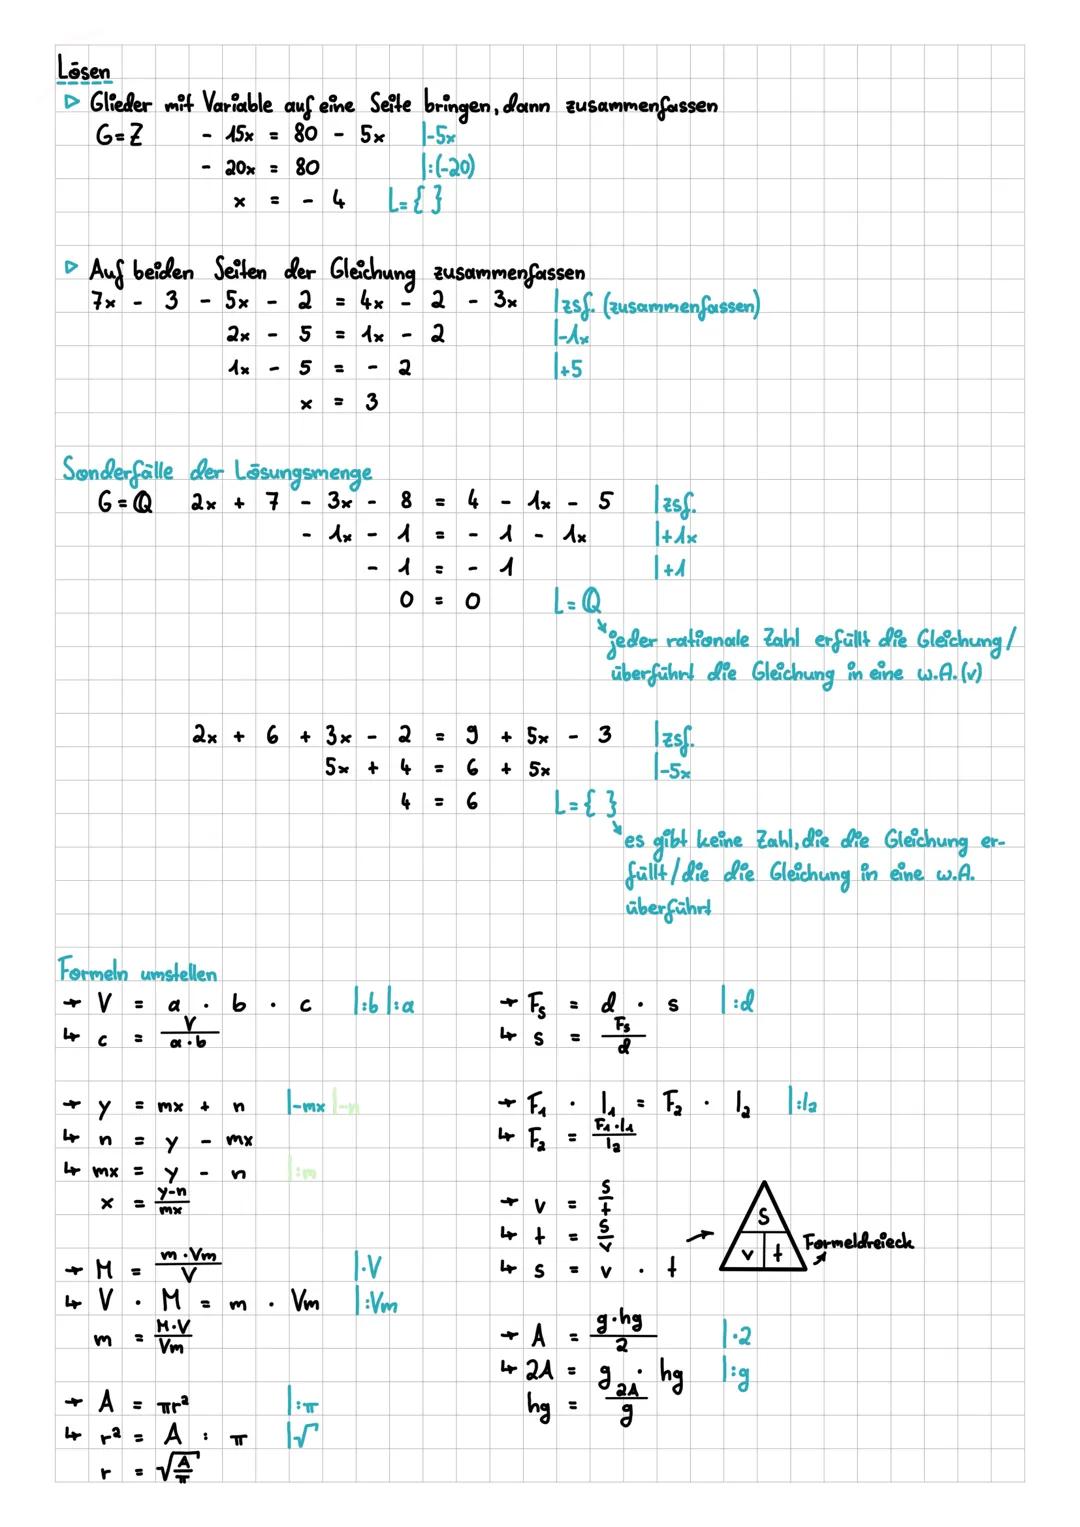 Lösen
▷ Glieder mit Variable auf eine Seite bringen, dann zusammenfassen
G=Z - 15x = 80 - 5x |-5x
- 20x = 80 |:(-20)
x = - 4 L={ }
▷ Auf beiden Seiten der Gleichung zusammenfassen
7x - 3 - 5x - 2 = 4x - 2 - 3x |zsf. (zusammenfassen)
2x - 5 = 1x - 2 |-1x
1x - 5 = - 2 |+5
x = 3
Sonderfälle der Lösungsmenge
G=ℚ 2x + 7 - 3x - 8 = 4 - 1x - 5 |zsf.
- 1x - 1 = - 1 - 1x |+1x
- 1 = - 1 |+1
0 = 0 L=ℚ
jeder rationale Zahl erfüllt die Gleichung/
überführt die Gleichung in eine w.A.(v)
2x + 6 + 3x - 2 = 9 + 5x - 3 |zsf.
5x + 4 = 6 + 5x |-5x
4 = 6 L={ }
es gibt keine Zahl, die die Gleichung er-
füllt/die die Gleichung in eine w.A.
überführt
Formeln umstellen
→ V = a · b · c |:b |:a
↳ c = V/(a·b)
→ y = mx + n |-mx |-n
↳ n = y - mx
↳ mx = y - n |:m
x = (y-n)/mx
→ M = (m·Vm)/V |·V
↳ V · M = m · Vm |:Vm
m = (M·V)/Vm
→ A = πr² |:π
↳ r² = A : π |√
r = √(A/π)
→ Fs = d · s |:d
↳ s = Fs/d
→ F₁ · l₁ = F₂ · l₂ |:l₂
↳ F₂ = (F₁·l₁)/l₂
→ v = s/t
↳ t = s/v
↳ s = v · t
S
v t
Formeldreieck
→ A = (g·hg)/2 |·2
↳ 2A = g · hg |:g
hg = 2A/g